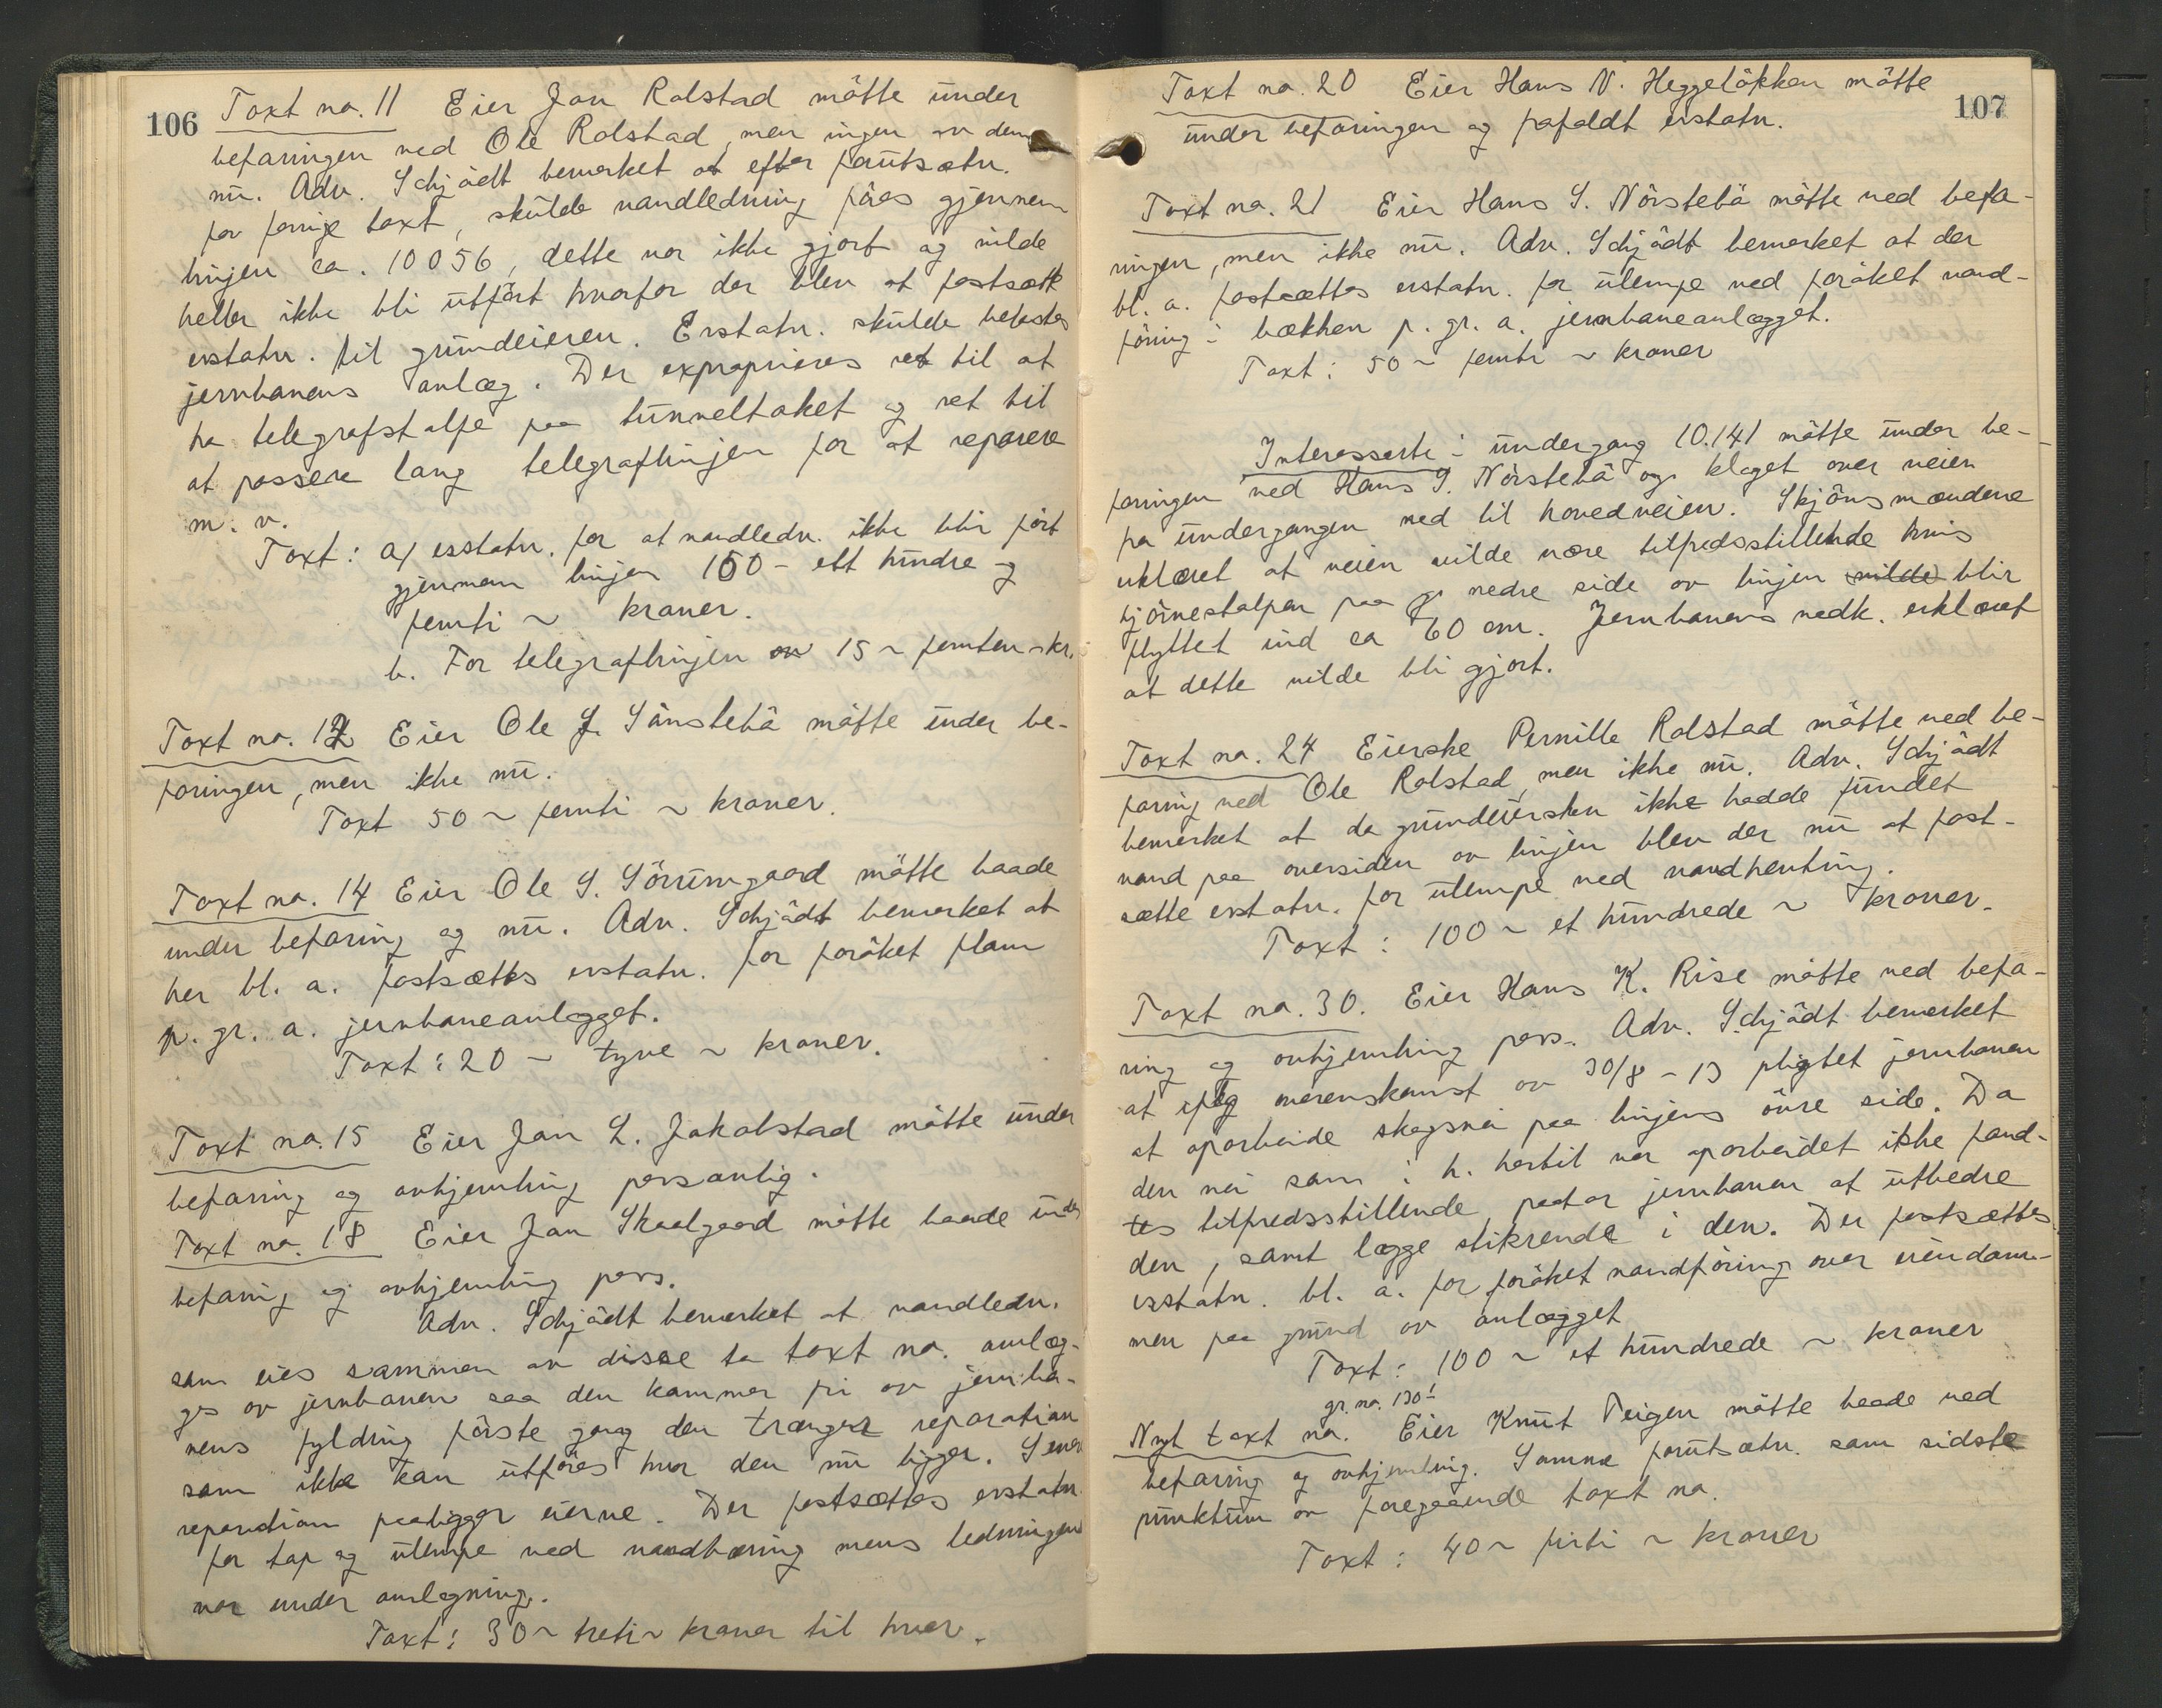 106
Taxt no. 11 Eier Jon Rolstad mötte under
befaringen ved Ole Rolstad, men ingen av dem
nu. Adv. Schjödt bemerket at efter forutsætn.
for forrige taxt, skulde vandledning föres gjennem
linjen ca. 10056, dette var ikke gjort og vilde
heller ikke bli utfört hvorfor der blev at fastsætte
erstatn. til grundeieren. Erstatn. skulde belastes
jernbanens anlæg. Der exproprieres ret til at
ha telegrafstolpe paa tunneltaket og ret til
at passere lang telegraflinjen for at reparere
m. v.
Taxt: a/ erstatn. for at vandledn. ikke blir fört
gjennem linjen 150 - ett hundre og
femti ~ kroner.
b. For telegraflinjen 15 ~ femten ~ kr.
Taxt no. 12 Eier Ole J. Sönstebö mötte under be-
faringen, men ikke nu.
Taxt 50 ~ femti ~ kroner.
Taxt no. 14 Eier Ole S. Sörumgaard mötte baade
under befaring og nu. Adv. Schjödt bemerket at
her bl. a. fastsættes erstatn. for foröket flom
p. gr. a. jernbaneanlægget.
Taxt: 20 ~ tyve ~ kroner.
Taxt no. 15 Eier Jon L. Jakobstad mötte under
befaring og avhjemling personlig.
Taxt no. 18 Eier Jon Skaalgaard mötte baade under
befaring og avhjemling pers.
Adv. Schjödt bemerket at vandledn.
som eies sammen av disse to taxt no. omlæg-
ges av jernbanen saa den kommer fri av jernba-
nens fylding förste gang den trænger reparation
som ikke kan utföres hvor den nu ligger. Senere
reparation paaligger eierne. Der fastsættes erstatn.
for tap og ulempe ved vandbæring mens ledningen
var under omlægning.
Taxt: 30 ~ treti ~ kroner til hver.
107
Taxt no. 20 Eier Hans N. Heggelökken mötte
under befaringen og frafaldt erstatn.
Taxt no. 21 Eier Hans S. Nörstebö mötte ved befa-
ringen, men ikke nu. Adv. Schjödt bemerket at der
bl. a. fastsættes erstatn. for ulempe ved foröket vand-
föring i bækken p. gr. a. jernbaneanlægget.
Taxt: 50 ~ femti ~ kroner
Interesserte i undergang 10.141 mötte under be-
faringen ved Hans S. Nörstebö og klaget over veien
fra undergangen ned til hovedveien. Skjönsmændene
erklæret at veien vilde være tilfredsstillende hvis
hjörnestolpen paa nedre side av linjen vilde blir
flyttet ind ca 60 cm. Jernbanens vedk. erklæret
at dette vilde bli gjort.
Taxt no. 24 Eierske Pernille Rolstad mötte ved be-
faring ved Ole Rolstad, men ikke nu. Adv. Schjödt
bemerket at da grundeiersken ikke hadde fundet
vand paa oversiden av linjen blev der nu at fast-
sætte erstatn. for ulempe ved vandhenting.
Taxt: 100 ~ et hundrede ~ kroner.
Taxt no. 30. Eier Hans K. Rise mötte ved befa-
ring og avhjemling pers. Adv. Schjödt bemerket
at ifölg overenskomst av 30/8 - 13 pligtet jernbanen
at oparbeide skogsvei paa linjens övre side. Da
den vei som i h. hertil var oparbeidet ikke fand-
tes tilfredsstillende, paatar jernbanen at utbedre
den, samt lægge stikrende i den. Der fastsættes
erstatn. bl. a. for foröket vandföring over eiendom-
men paa grund av anlægget
Taxt: 100 ~ et hundrede ~ kroner
gr. no. 130¹
Nyt taxt no. Eier Knut Teigen mötte baade ved
befaring og avhjemling. Samme forutsætn. som sidste
punktum av foregaaende taxt no.
Taxt: 40 ~ firti ~ kroner